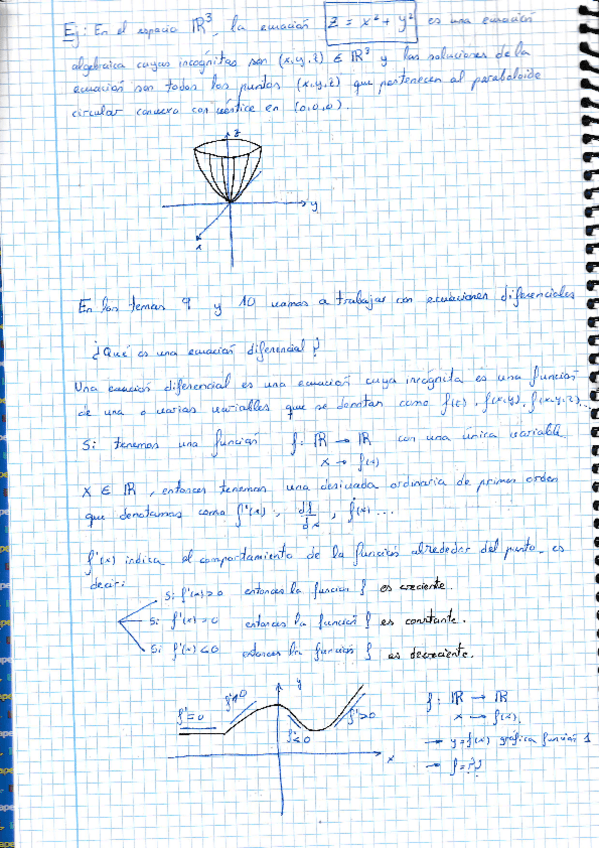 Ej: En el espacio ℝ³, la ecuación z = x² + y² es una ecuación
algebraica cuyas incógnitas son (x,y,z) ∈ ℝ³ y las soluciones de la
ecuación son todos los puntos (x,y,z) que pertenecen al paraboloide
circular convexo con vértice en (0,0,0).
z
y
x
En los temas 9 y 10 vamos a trabajar con ecuaciones diferenciales
¿Qué es una ecuación diferencial?
Una ecuación diferencial es una ecuación cuya incógnita es una función
de una o varias variables que se denotan como f(t), f(x,y), f(x,y,z)...
Si tenemos una función f: ℝ → ℝ con una única variable
x → f(x)
x ∈ ℝ, entonces tenemos una derivada ordinaria de primer orden
que denotamos como f'(x), df/dx, ḟ(x)...
f'(x) indica el comportamiento de la función alrededor del punto, es
decir:
Si f'(x)>0 entonces la función f es creciente.
Si f'(x)=0 entonces la función f es constante.
Si f'(x)<0 entonces la función f es decreciente.
y
f'=0
f'≤0
f'>0
x
f: ℝ → ℝ
x → f(x).
→ y=f(x) gráfica función 1
→ f=??